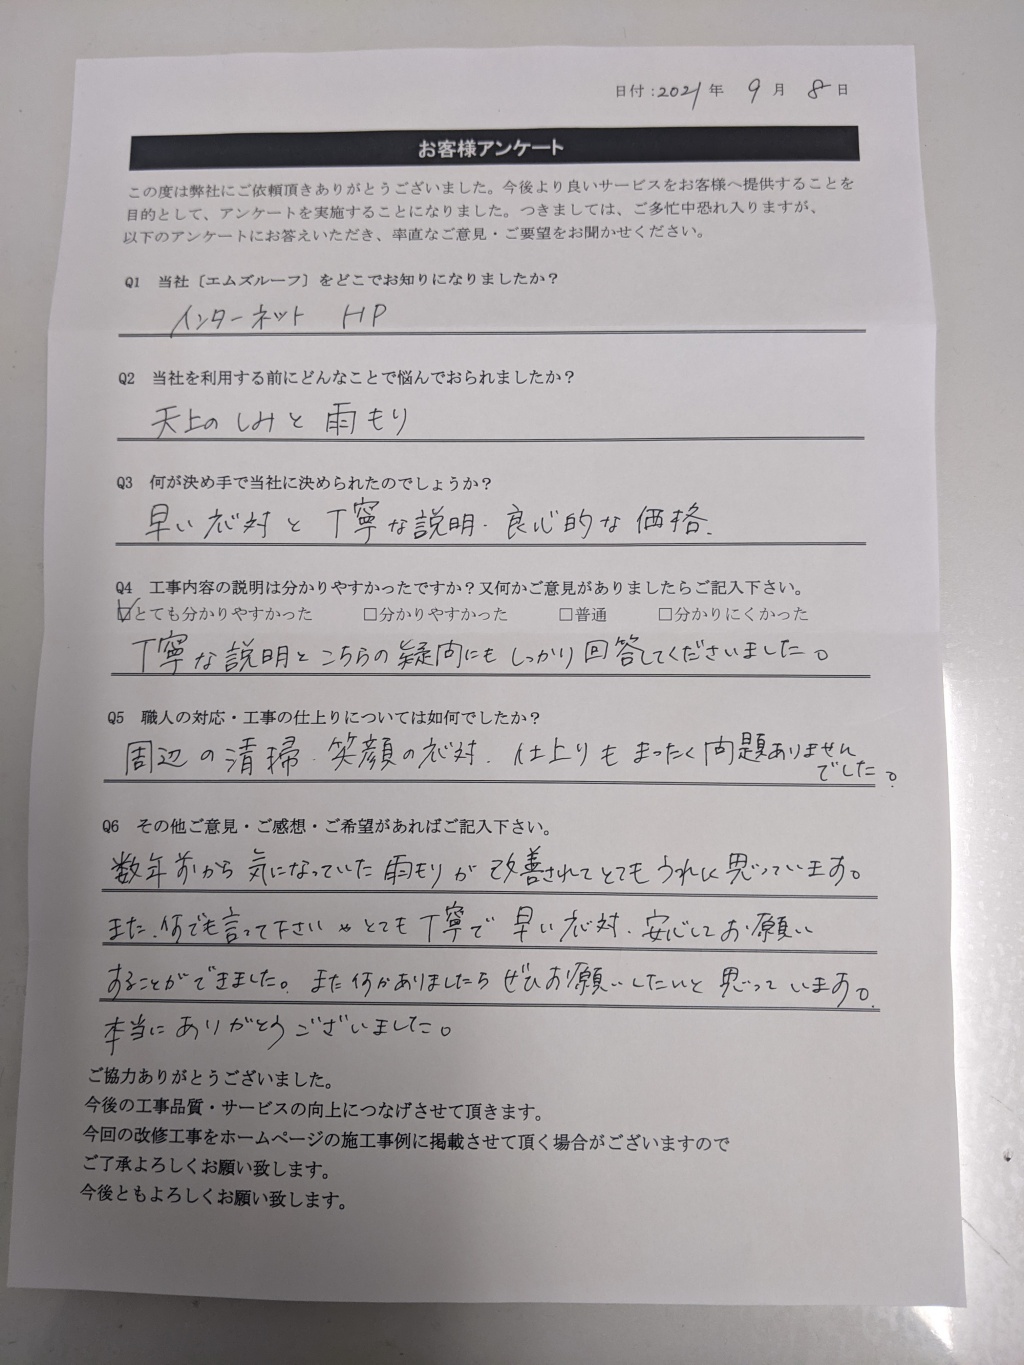 日付：2021年 9月 8日
お客様アンケート
この度は弊社にご依頼頂きありがとうございました。今後より良いサービスをお客様へ提供することを
目的として、アンケートを実施することになりました。つきましては、ご多忙中恐れ入りますが、
以下のアンケートにお答えいただき、率直なご意見・ご要望をお聞かせください。
Q1　当社〔エムズルーフ〕をどこでお知りになりましたか？
インターネット　HP
Q2　当社を利用する前にどんなことで悩んでおられましたか？
天上のしみと雨もり
Q3　何が決め手で当社に決められたのでしょうか？
早い応対と丁寧な説明．良心的な価格．
Q4　工事内容の説明は分かりやすかったですか？又何かご意見がありましたらご記入下さい。
☑とても分かりやすかった　□分かりやすかった　□普通　□分かりにくかった
丁寧な説明とこちらの疑問にもしっかり回答してくださいました。
Q5　職人の対応・工事の仕上りについては如何でしたか？
周辺の清掃．笑顔の応対．仕上りもまったく問題ありません
でした。
Q6　その他ご意見・ご感想・ご希望があればご記入下さい。
数年前から気になっていた雨もりが改善されてとてもうれしく思っています。
また、何でも言って下さいやとても丁寧で早い応対．安心してお願い
することができました。また何かありましたらぜひお願いしたいと思っています。
本当にありがとうございました。
ご協力ありがとうございました。
今後の工事品質・サービスの向上につなげさせて頂きます。
今回の改修工事をホームページの施工事例に掲載させて頂く場合がございますので
ご了承よろしくお願い致します。
今後ともよろしくお願い致します。